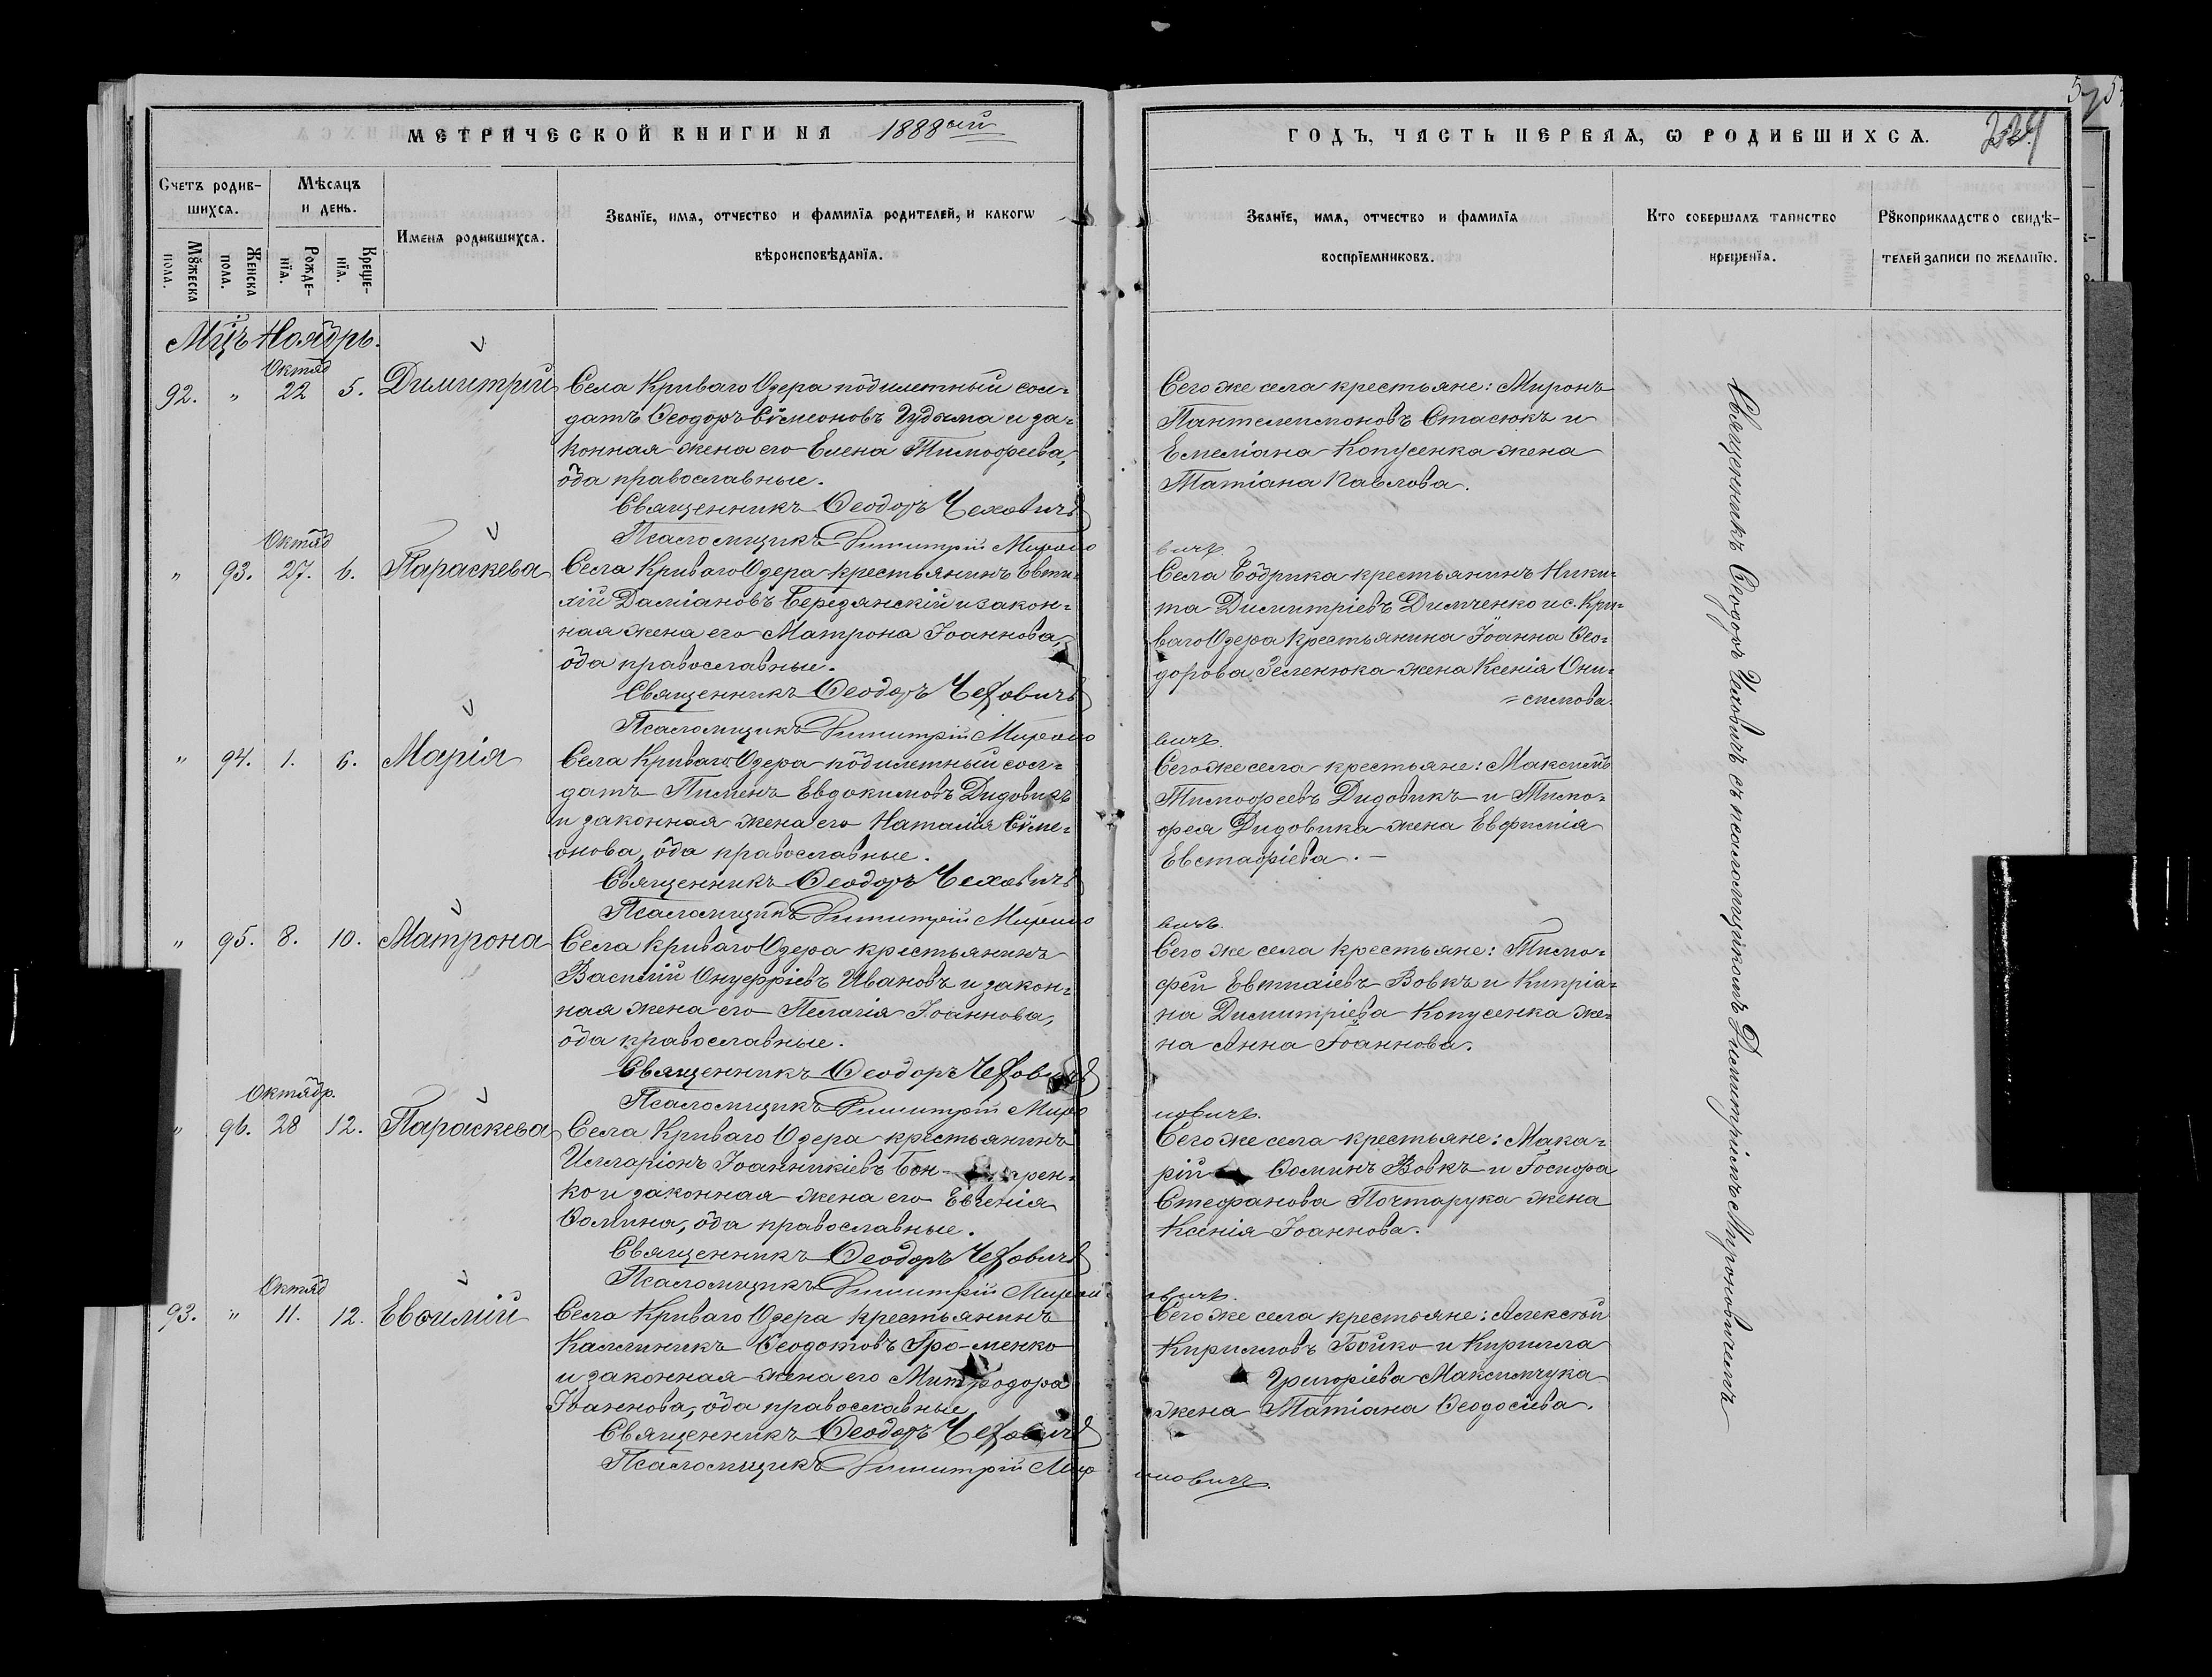 МЕТРИЧЕСКОЙ КНИГИ НА 1888ый
ГОДЪ, ЧАСТЬ ПЕРВАѦ, Ѡ РОДИВШИХСѦ.
Счетъ родив-
шихсѧ.
Мѣсѧцъ
и день.
Мꙋжеска
пола.
Женска
пола.
Рожде-
нїѧ.
Креще-
нїѧ.
Имена родившихсѧ.
Званїе, имѧ, отчество и фамилїѧ родителей, и какогѡ
вѣроисповѣданїѧ.
Званїе, имѧ, отчество и фамилїѧ
воспрїемниковъ.
Кто совершалъ таинство
крещенїѧ.
Рꙋкоприкладство свидѣ-
телей записи по желанїю.
Мцъ Ноябрь.
Октяб
92. " 22 5. Димитрій
Села Криваго Озера побилетный сол-
датъ Ѳеодоръ Сѵмеоновъ Гудыма и за-
конная жена его Елена Тимоѳеева,
оба православные.
Священникъ Ѳеодоръ Чеховичъ
Псаломщикъ Димитрій Мироно
вичъ.
Сего же села крестьяне: Миронъ
Пантелеимоновъ Стасюкъ и
Емеліана Копусенка жена
Татіана Павлова.
Октяб
" 93. 27. 6. Параскева
Села Криваго Озера крестьянинъ Евти-
хій Даміановъ Березянскій и закон-
ная жена его Матрона Іоаннова,
оба православные.
Священникъ Ѳеодоръ Чеховичъ
Псаломщикъ Димитрій Мироно
вичъ.
Села Бобрика крестьянинъ Ники-
та Димитріевъ Димченко и с. Кри-
ваго Озера крестьянина Іоанна Ѳео-
дорова Зеленюка жена Ксенія Они-
=симова.
" 94. 1. 6. Марія
Села Криваго Озера побилетный сол-
датъ Пименъ Евдокимовъ Дидовикъ
и законная жена его Наталія Сѵме-
онова, оба православные.
Священникъ Ѳеодоръ Чеховичъ
Псаломщикъ Димитрій Мироно
вичъ.
Сего же села крестьяне: Максимъ
Тимоѳеевъ Дидовикъ и Тимо-
ѳея Дидовика жена Евфимія
Евстафіева. —
" 95. 8. 10. Матрона
Села Криваго Озера крестьянинъ
Василій Онуфріевъ Ивановъ и закон-
ная жена его Пелагія Іоаннова,
оба православные.
Священникъ Ѳеодоръ Чеховичъ
Псаломщикъ Димитрій Миро
новичъ.
Сего же села крестьяне: Тимо-
ѳей Евтихіевъ Вовкъ и Кипріа-
на Димитріева Копусенка же-
на Анна Іоаннова.
Октябр.
" 96. 28 12. Параскева
Села Криваго Озера крестьянинъ
Илларіонъ Іоанникіевъ Бон-
ко и законная жена его Евгенія
Ѳомина, оба православные.
Священникъ Ѳеодоръ Чеховичъ
Псаломщикъ Димитрій Мирон
овичъ.
Сего же села крестьяне: Мака-
рій Ѳоминъ Вовкъ и
Стефанова Почтарука жена
Ксенія Іоаннова.
Октяб
93. " 11. 12. Евѳимій
Села Криваго Озера крестьянинъ
Каллиникъ Ѳеодотовъ Гро-менко
и законная жена его Митродора
Іоаннова, оба православные.
Священникъ Ѳеодоръ Чеховичъ
Псаломщикъ Димитрій Миро
новичъ.
Сего же села крестьяне: Алексѣй
Кирилловъ Бойко и Кирилла
Григоріева Максимчука
жена Татіана Ѳеодосіева.
Священникъ Ѳеодоръ Чеховичъ съ псаломщикомъ Димитріемъ Мироновичемъ